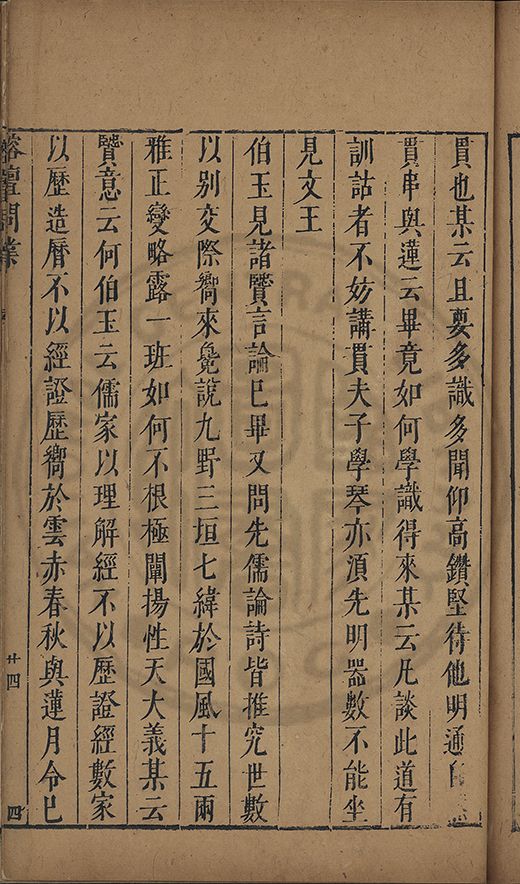 貫也某云且要多識多聞仰高鑽堅待他明通自
貫串與蓮云畢竟如何學識得來某云凡談此道有
訓詁者不妨講貫夫子學琴亦須先明器數不能坐
見文王
伯玉見諸賢言論巳畢又問先儒論詩皆推究世數
以別交際嚮來㲋說九野三垣七緯於國風十五兩
雅正變略露一班如何不根極闡揚性天大義某云
賢意云何伯玉云儒家以理解經不以歷證經數家
以歷造曆不以經證歷嚮於雲赤春秋與蓮月令巳
榕壇問業
廿四
四